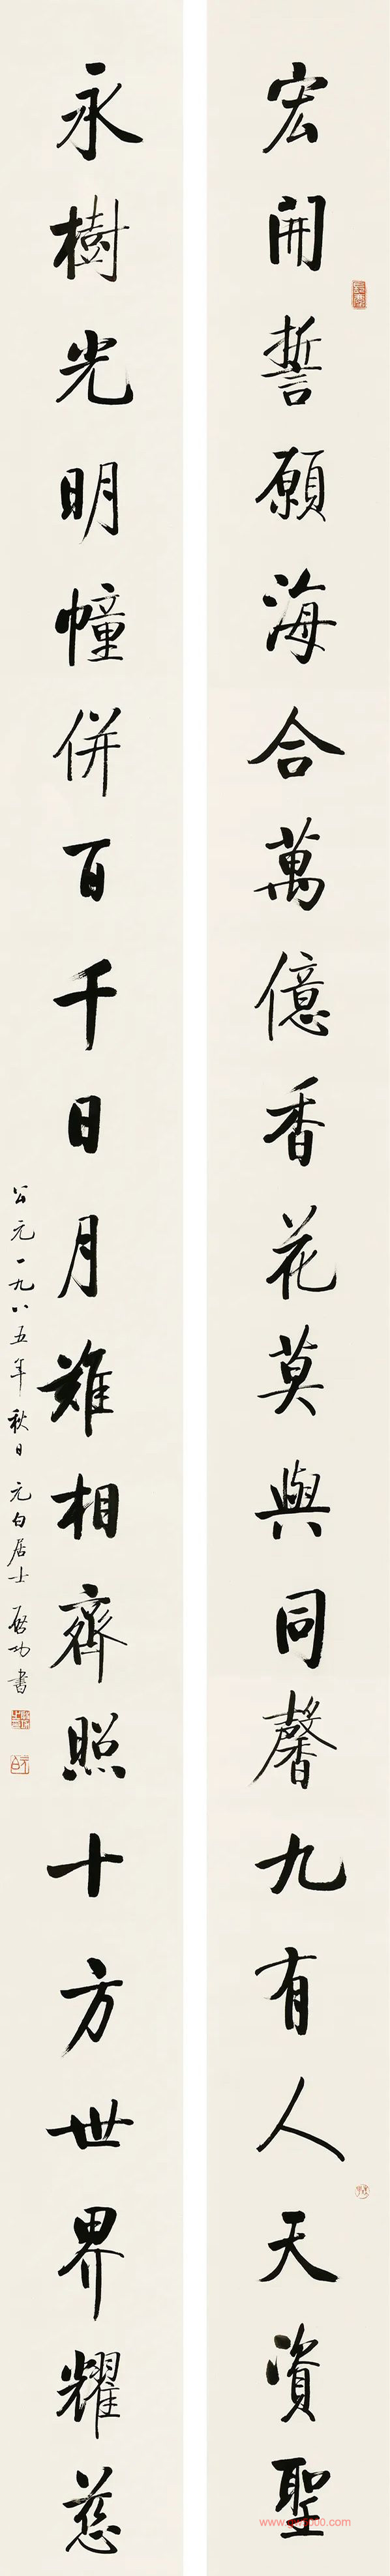 宏開誓願海合萬億香花莫與同馨九有人天資聖
永樹光明幢併百千日月難相齊照十方世界耀慈
公元一九八五年秋日元白居士啓功書